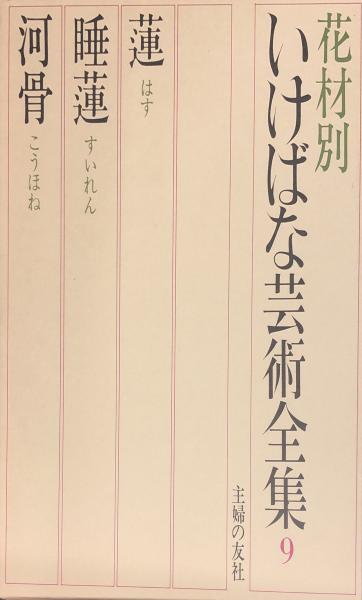 花材別
いけばな芸術全集9
主婦の友社
蓮
はす
睡蓮
すいれん
河骨
こうほね